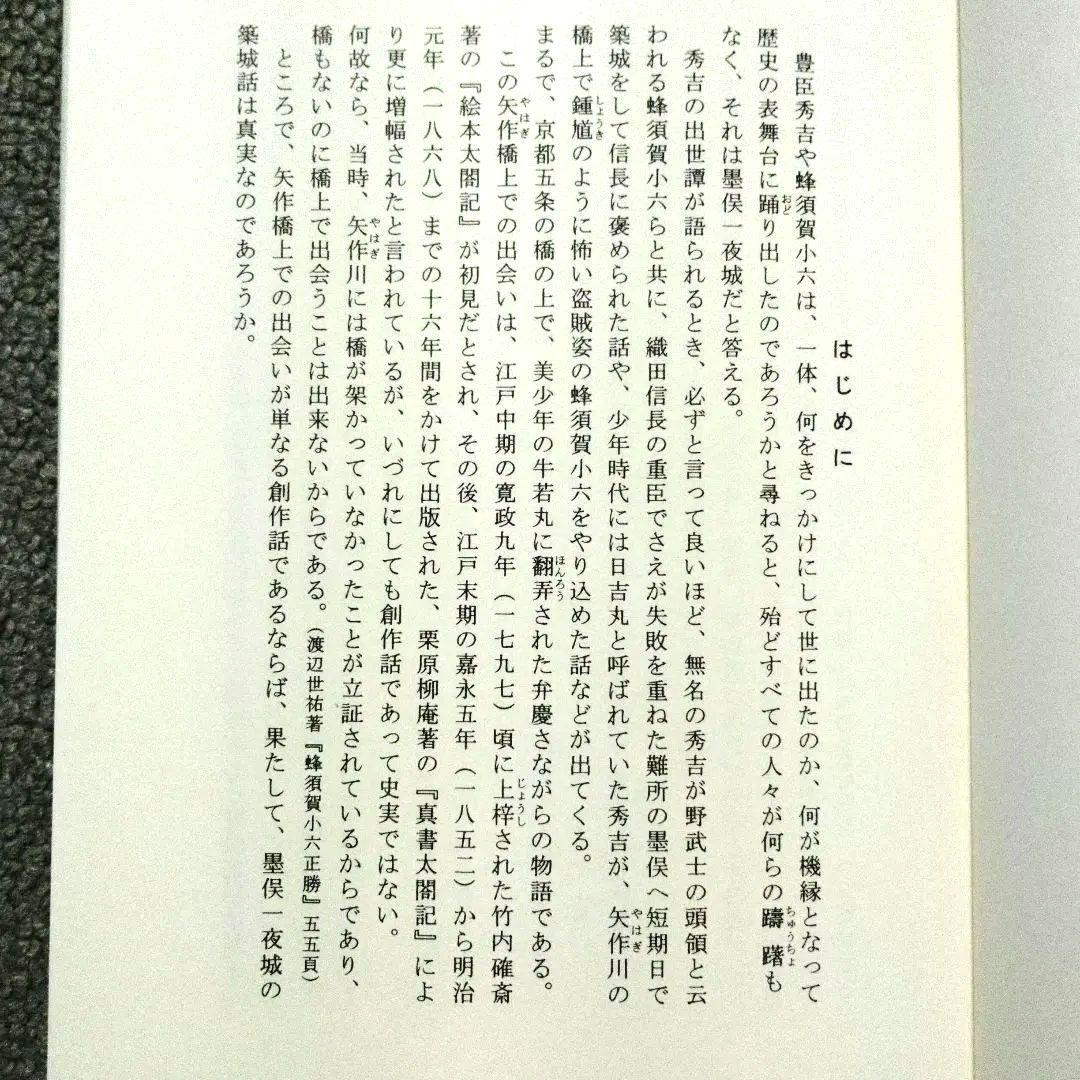 はじめに
豊臣秀吉や蜂須賀小六は、一体、何をきっかけにして世に出たのか、何が機縁となって
歴史の表舞台に踊り出したのであろうかと尋ねると、殆どすべての人々が何らの躊躇も
なく、それは墨俣一夜城だと答える。
秀吉の出世譚が語られるとき、必ずと言って良いほど、無名の秀吉が野武士の頭領と云
われる蜂須賀小六らと共に、織田信長の重臣でさえが失敗を重ねた難所の墨俣へ短期日で
築城をして信長に褒められた話や、少年時代には日吉丸と呼ばれていた秀吉が、矢作川の
橋上で鍾馗のように怖い盗賊姿の蜂須賀小六をやり込めた話などが出てくる。
まるで、京都五条の橋の上で、美少年の牛若丸に翻弄された弁慶さながらの物語である。
この矢作橋上での出会いは、江戸中期の寛政九年（一七九七）頃に上梓された竹内確斎
著の『絵本太閤記』が初見だとされ、その後、江戸末期の嘉永五年（一八五二）から明治
元年（一八六八）までの十六年間をかけて出版された、栗原柳庵著の『真書太閤記』によ
り更に増幅されたと言われているが、いづれにしても創作話であって史実ではない。
何故なら、当時、矢作川には橋が架かっていなかったことが立証されているからであり、
橋もないのに橋上で出会うことは出来ないからである。（渡辺世祐著『蜂須賀小六正勝』五五頁）
ところで、矢作橋上での出会いが単なる創作話であるならば、果たして、墨俣一夜城の
築城話は真実なのであろうか。